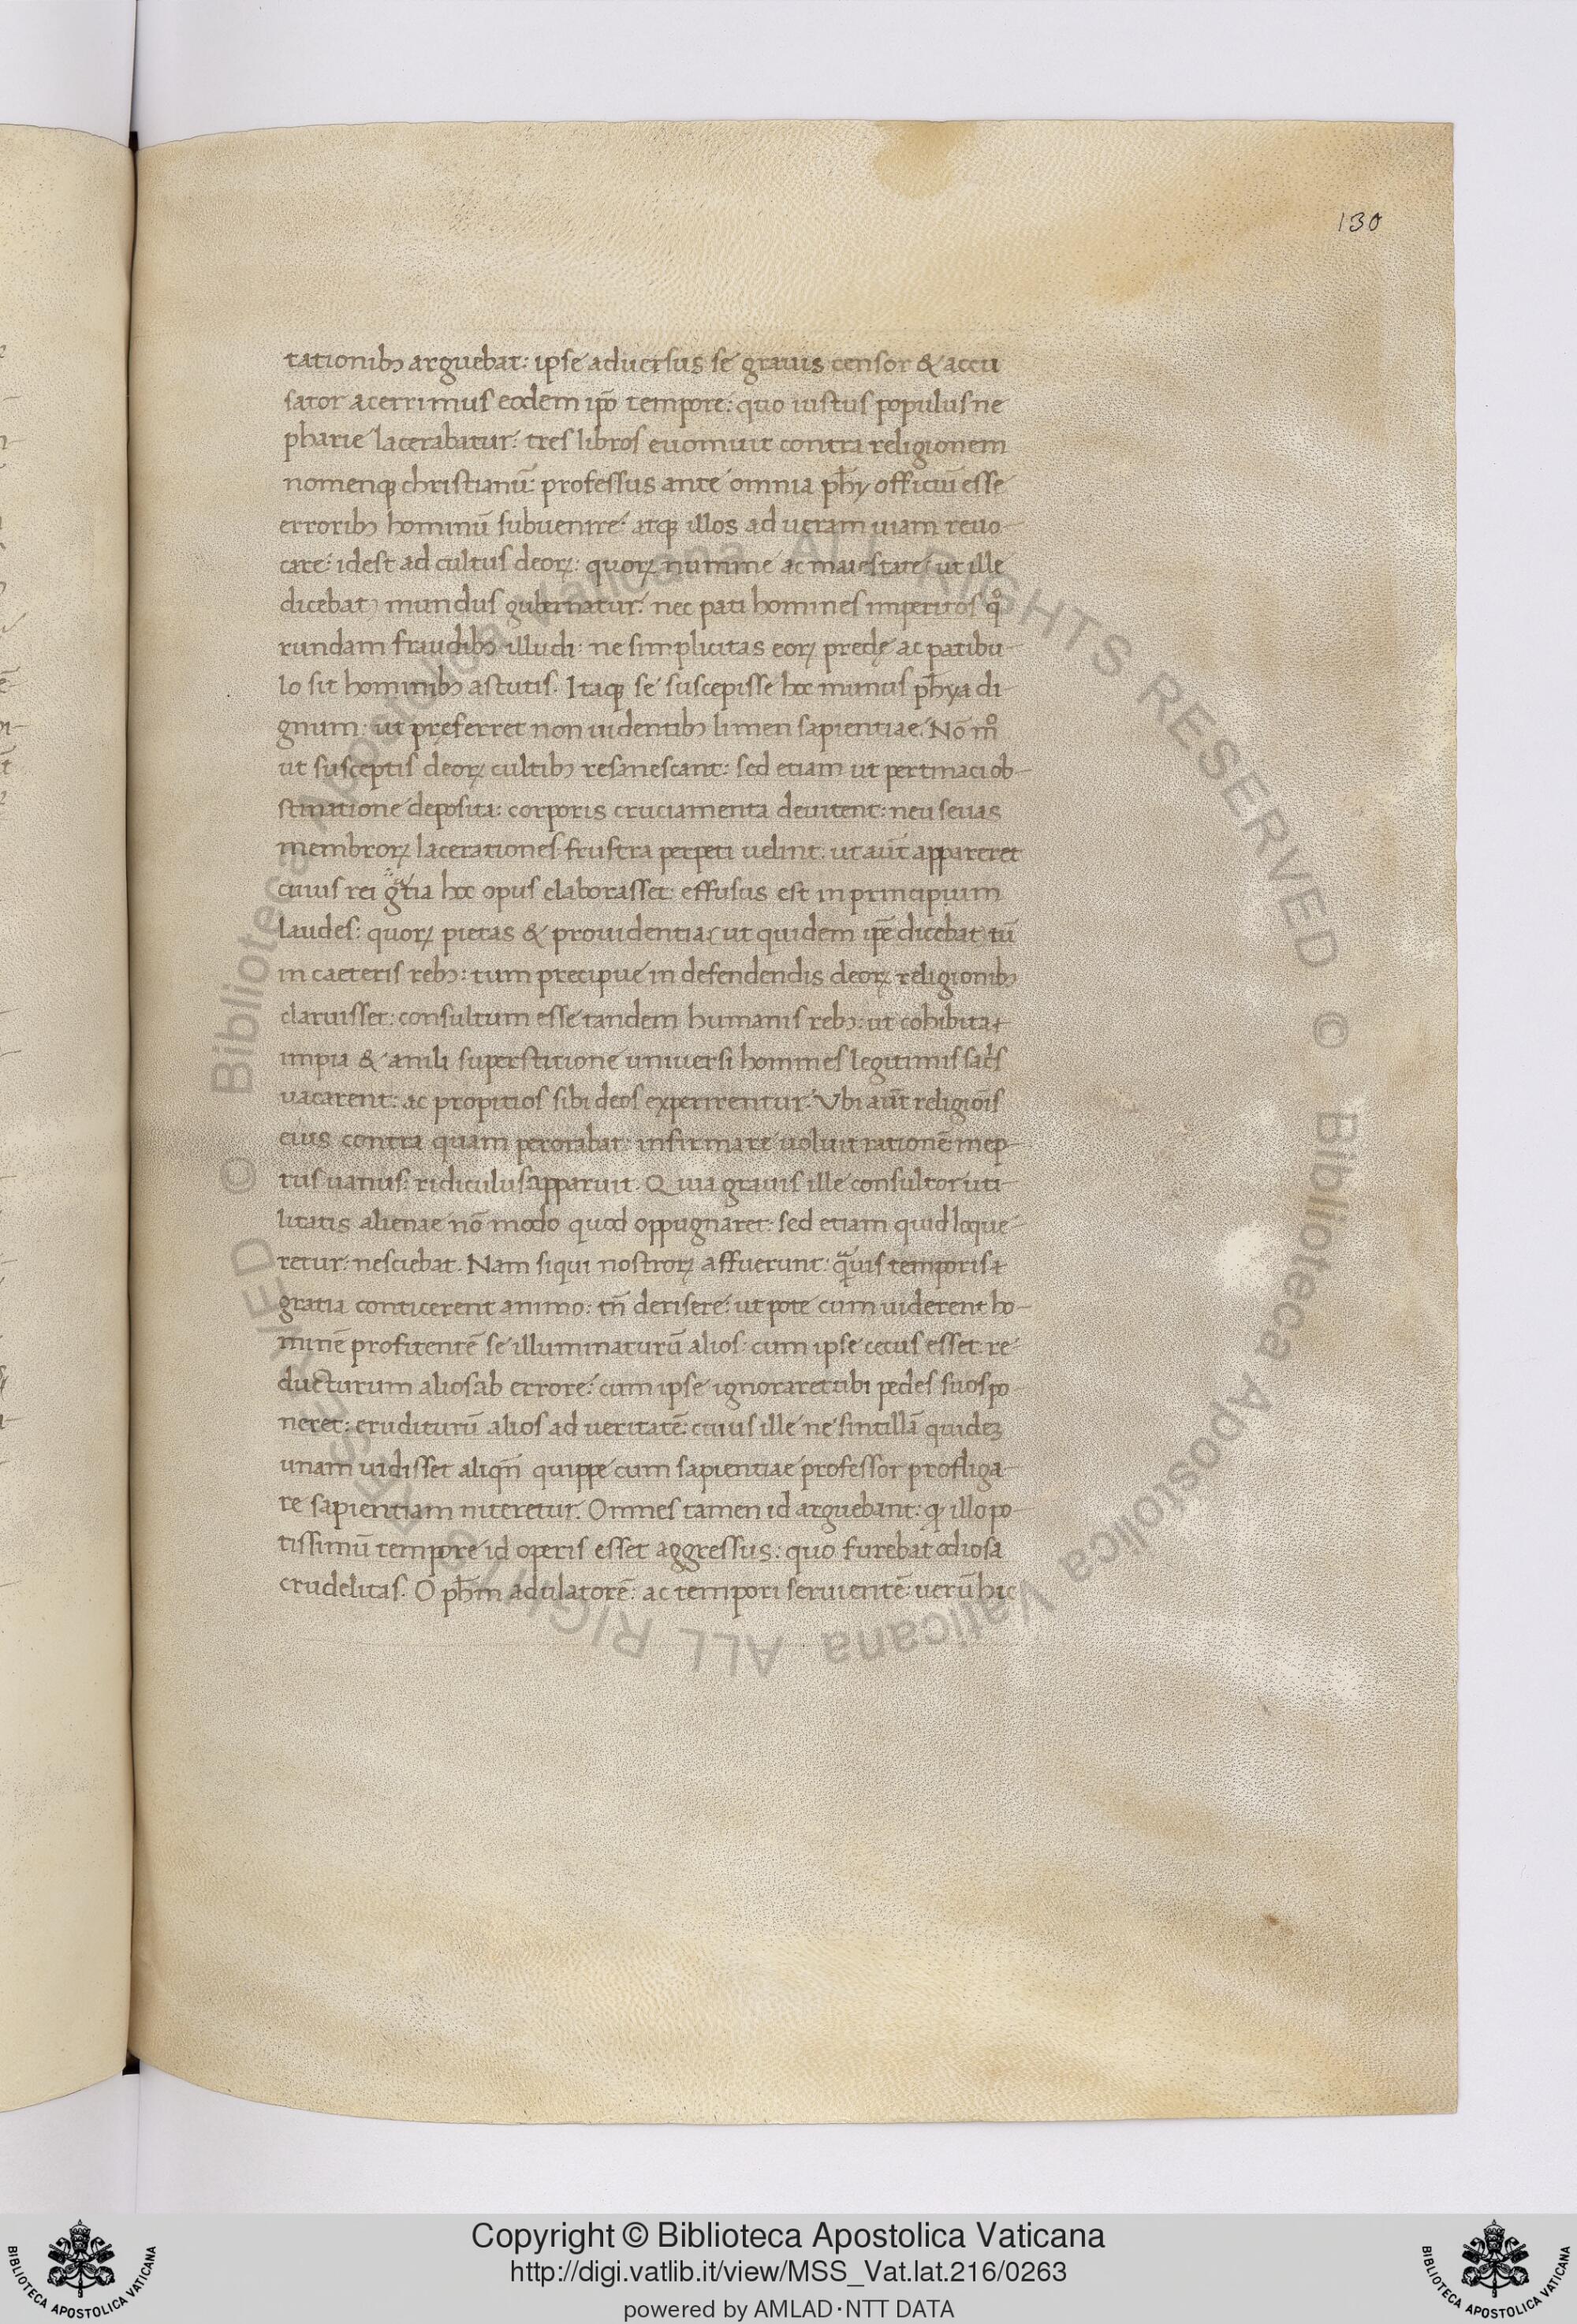 130
tationibꝫ arguebat: ipse aduersus se grauis censor & accu
sator acerrimus eodem ip̄o tempore: quo iustus populus ne
pharie lacerabatur: tres libros euomuit contra religionem
nomenqꝫ christianū: professus ante omnia ph̄y officiū esse
erroribꝫ hominū subuenire: atqꝫ illos ad ueram uiam reuo-
care: idest ad cultus deoꝝ: quoꝝ numine ac maiestate, ut ille
dicebat) mundus gubernatur: nec pati homines imperitos qͦ
rundam fraudibꝫ illudi: ne simplicitas eoꝝ predę ac patibu-
lo sit hominibꝫ astutis. Itaqꝫ se suscepisse hoc munus ph̄ya di-
gnum: ut pręferret non uidentibꝫ limen sapientiae. Nō mͦ
ut susceptis deoꝝ cultibꝫ resanescant: sed etiam ut pertinaci ob-
stinatione deposita: corporis cruciamenta deuitent: neu seuas
membroꝝ lacerationes frustra perpeti uelint. ut aut̄ appareret
cuius rei gr̄atia hoc opus elaborasset: effusus est in principium
laudes: quoꝝ pietas & prouidentia (ut quidem ip̄e dicebat) tū
in caeteris rebꝫ: tum precipue in defendendis deoꝝ religionibꝫ
claruisset: consultum esse tandem humanis rebꝫ: ut cohibita
impia & anili superstitione uniuersi homines legitimis sac̄s
uacarent: ac propitios sibi deos experirentur. Vbi aut̄ religiōis
eius contra quam perorabat: infirmare uoluit rationē inep-
tus uanus: ridiculus apparuit. Quia grauis ille consultor uti-
litatis alienae nō modo quod oppugnaret: sed etiam quid loque-
retur: nesciebat. Nam siqui nostroꝝ affuerunt: qͣuis temporis
gratia conticerent animo: tn̄ derisere: ut pote cum uiderent ho-
minē profitentē se illuminaturū alios: cum ipse cecus esset: re-
ducturum alios ab errore: cum ipse ignoraret ubi pedes suos po-
neret: eruditurū alios ad ueritatē: cuius ille ne sintillā quideꝫ
unam uidisset aliqn̄ quippe cum sapientiae professor profliga-
re sapientiam niteretur. Omnes tamen id arguebant: ꝙ illo po-
tissimū tempore id operis esset aggressus: quo furebat odiosa
crudelitas. O ph̄m adulatorē: ac tempori seruientē: uerū hic
© Biblioteca Apostolica Vaticana ALL RIGHTS RESERVED © Biblioteca Apostolica Vaticana ALL RIGHTS RESERVED
Copyright © Biblioteca Apostolica Vaticana
http://digi.vatlib.it/view/MSS_Vat.lat.216/0263
powered by AMLAD·NTT DATA
BIBLIOTECA APOSTOLICA VATICANA
BIBLIOTECA APOSTOLICA VATICANA